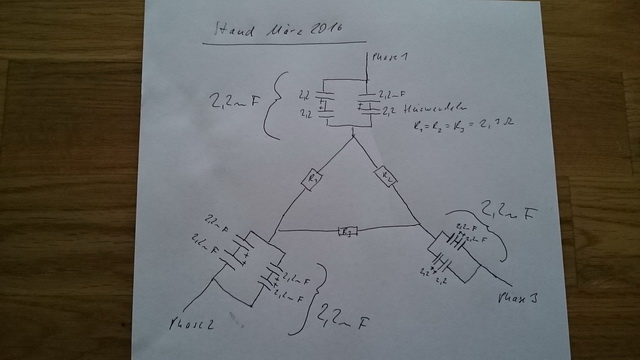 Stand März 2016
Phase 1
2,2mF
2,2
2,2mF
2,2
2,2
Heizwendeln
R₁=R₂=R₃ = 2,1Ω
R₁
R₂
R₃
2,2mF
2,2mF
2,2mF
2,2mF
2,2mF
2,2mF
2,2mF
2,2mF
2,2mF
2,2
2,2
Phase 2
Phase 3